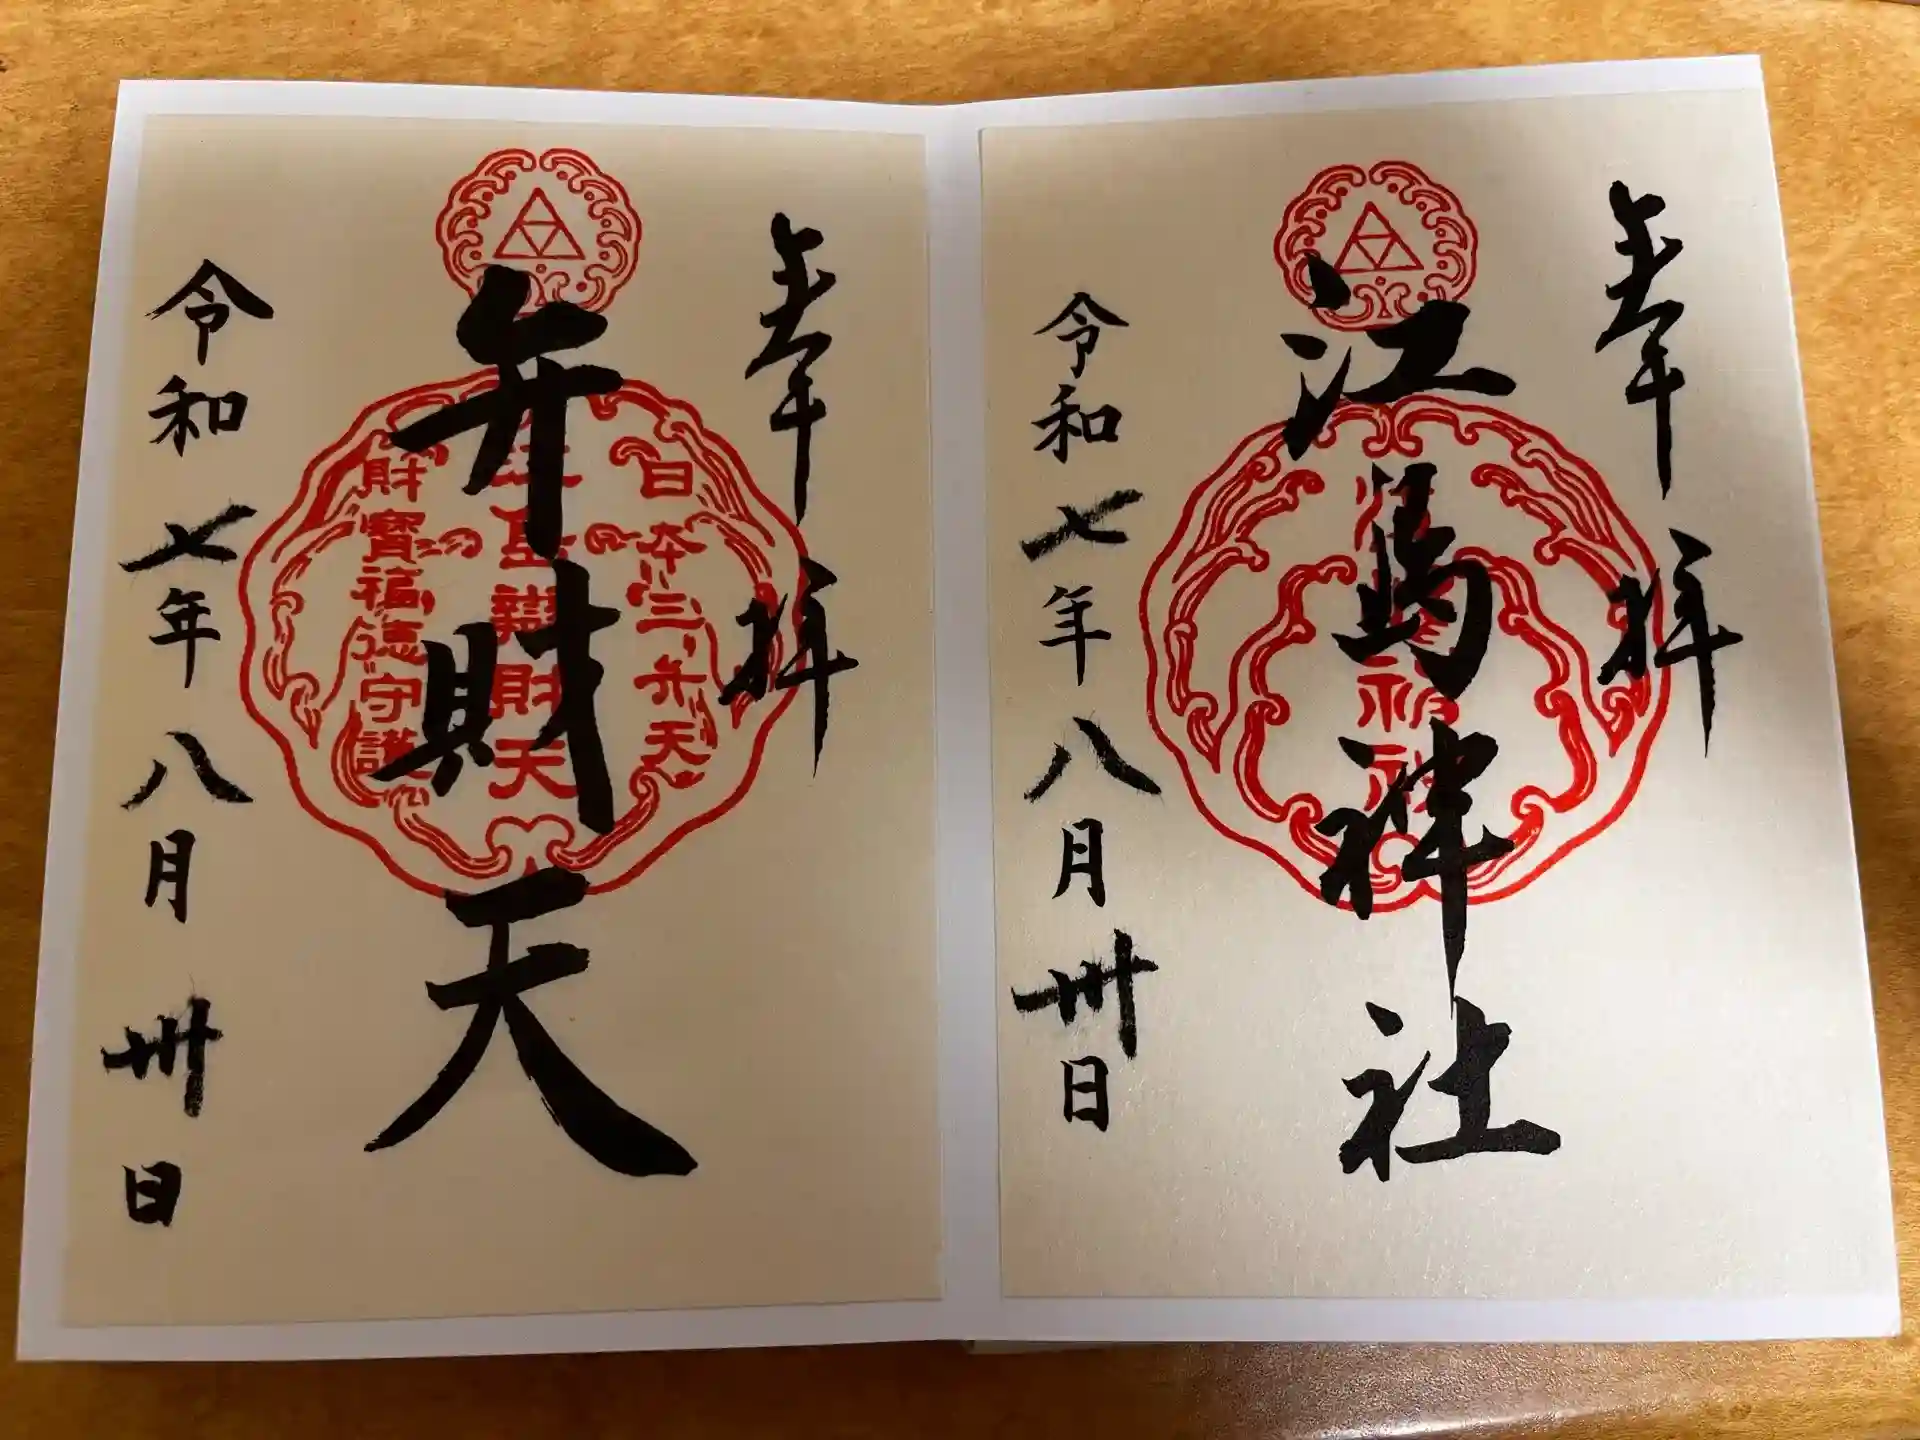 奉拝
江島神社
令和七年八月卅日
奉拝
弁財天
日本三弁天
江島辯財天
財寶福徳守護
令和七年八月卅日